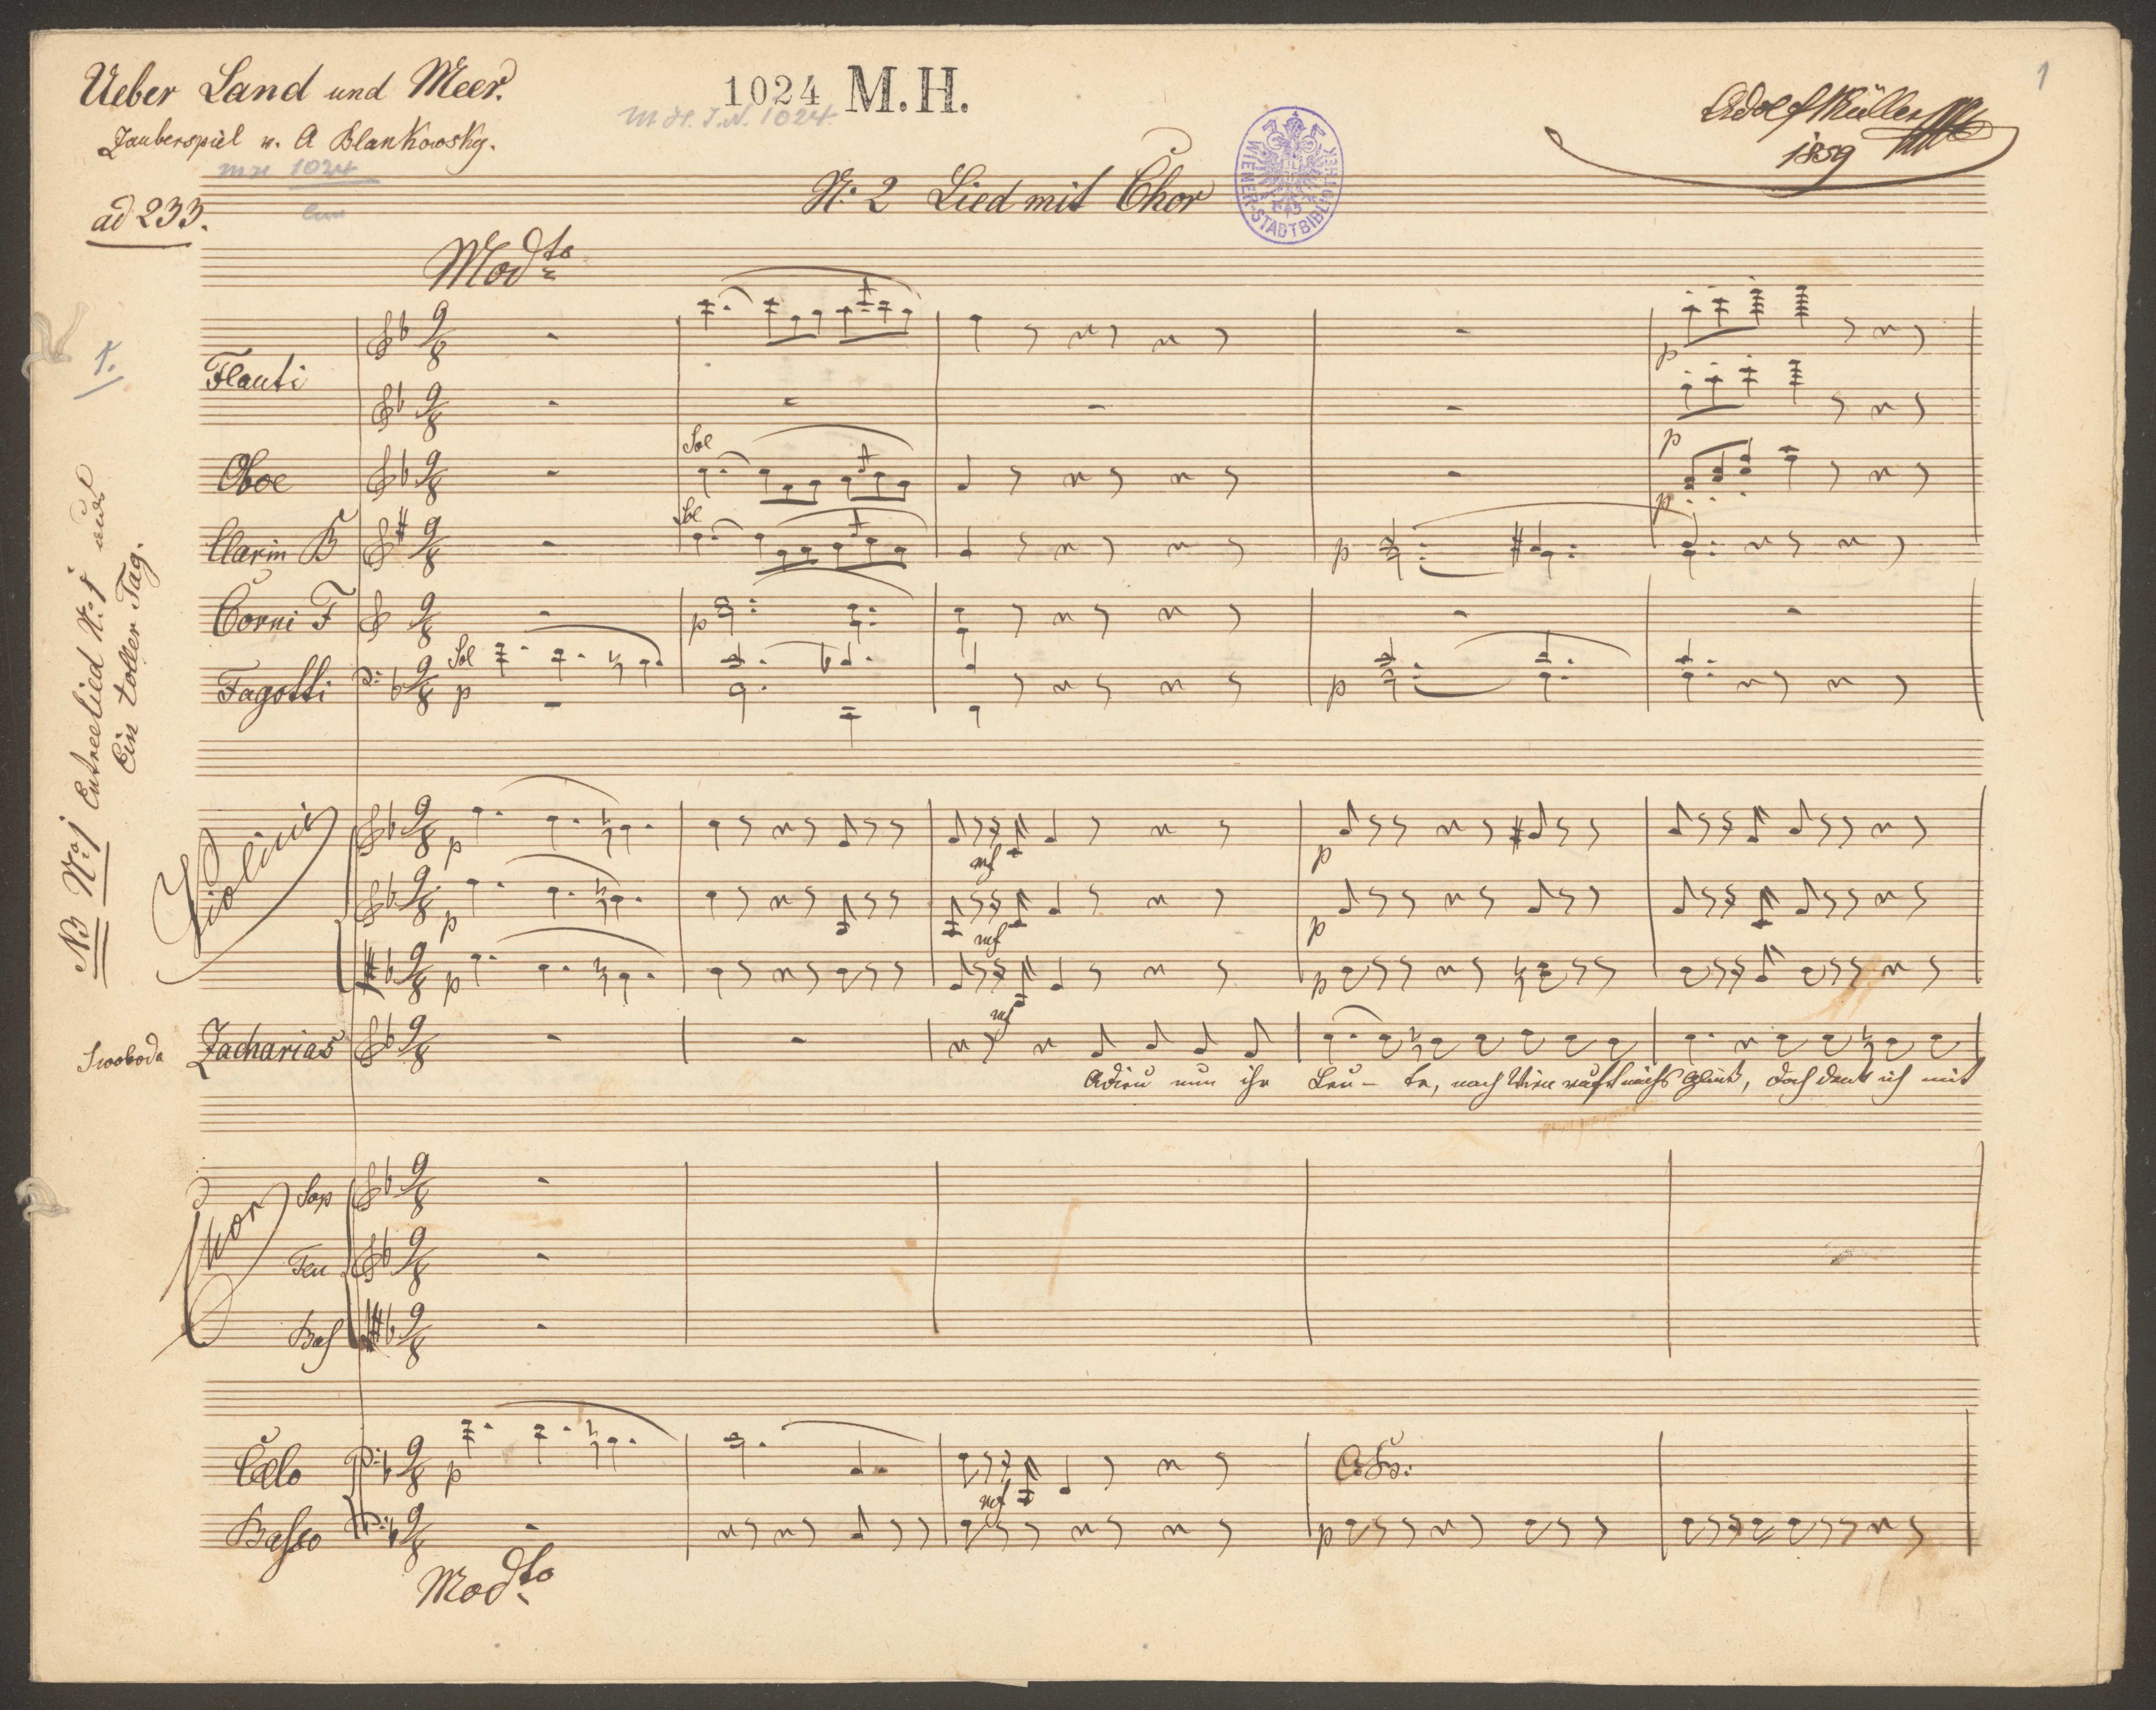 Ueber Land und Meer.
Zauberspiel v. A Blankowsky.
1024 M.H.
M.H. I.N. 1024
MH 1024
Adolf Müller
1859
1
ad 233.
No: 2 Lied mit Chor
WIENER-STADTBIBLIOTHEK
Modto
1.
Flauti
p
p
Oboe
Sol
p
Clarin B
Sol
p
Corni F
p
Fagotti
Sol
p
p
NB No: 1 Entreelied No: 1 aus
Ein toller Tag.
Violini
p
mf
p
p
mf
p
p
mf
p
Swoboda Zacharias
Adieu nun ihr Leu- te, nach Wien ruft michs Glück, doch denk ich mit
Chor
Sop
Ten
Baß
Cello
p
mf
Co Bo:
Basso
p
Modto